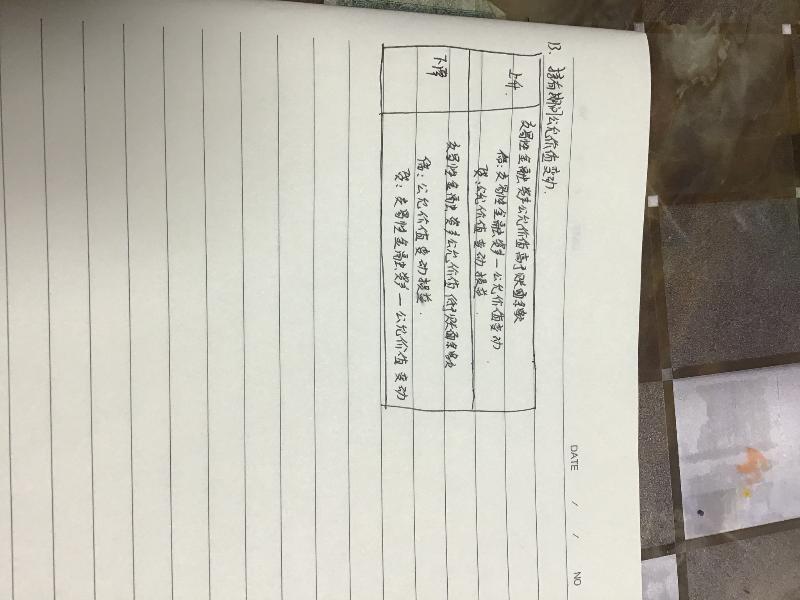 DATE / / NO
B. 持有期间公允价值变动.
上升.
交易性金融资产公允价值高于账面余额
借:交易性金融资产—公允价值变动
贷:公允价值变动损益.
下降
交易性金融资产公允价值低于账面余额
借:公允价值变动损益.
贷:交易性金融资产—公允价值变动